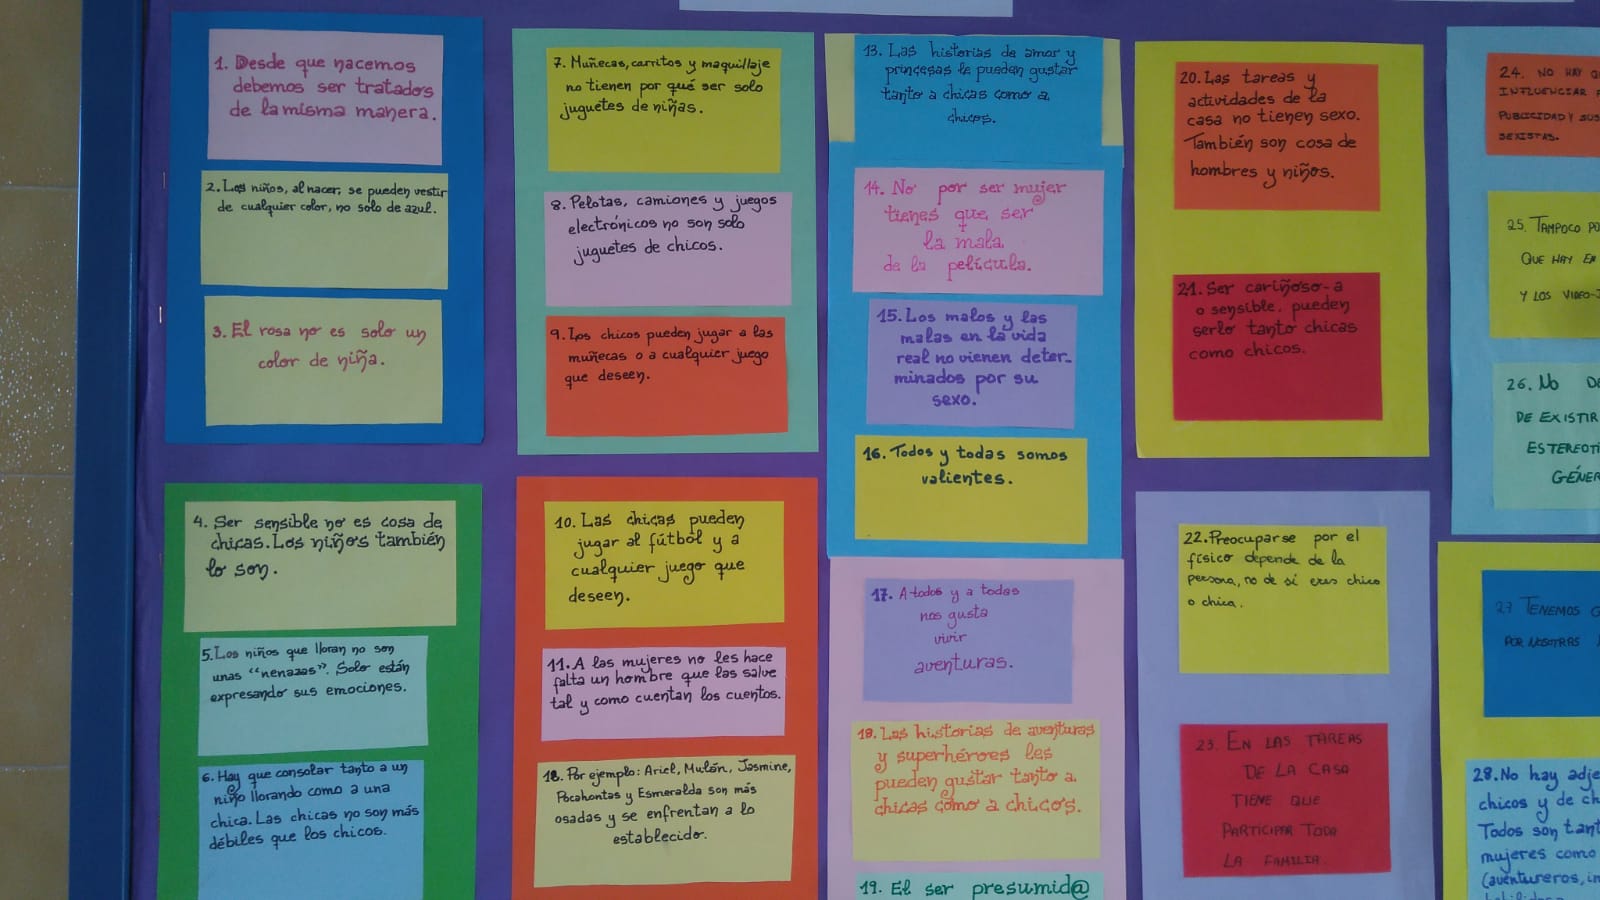 1. Desde que nacemos
debemos ser tratados
de la misma manera.
2. Los niños, al nacer, se pueden vestir
de cualquier color, no solo de azul.
3. El rosa no es solo un
color de niña.
4. Ser sensible no es cosa de
chicas. Los niños también
lo son.
5. Los niños que lloran no son
unas "nenazas". Solo están
expresando sus emociones.
6. Hay que consolar tanto a un
niño llorando como a una
chica. Las chicas no son más
débiles que los chicos.
7. Muñecas, carritos y maquillaje
no tienen por qué ser solo
juguetes de niñas.
8. Pelotas, camiones y juegos
electrónicos no son solo
juguetes de chicos.
9. Los chicos pueden jugar a las
muñecas o a cualquier juego
que deseen.
10. Las chicas pueden
jugar al fútbol y a
cualquier juego que
deseen.
11. A las mujeres no les hace
falta un hombre que las salve
tal y como cuentan los cuentos.
12. Por ejemplo: Ariel, Mulán, Jasmine,
Pocahontas y Esmeralda son más
osadas y se enfrentan a lo
establecido.
13. Las historias de amor y
princesas le pueden gustar
tanto a chicas como a
chicos.
14. No por ser mujer
tienes que ser
la mala
de la película.
15. Los malos y las
malas en la vida
real no vienen deter-
minados por su
sexo.
16. Todos y todas somos
valientes.
17. A todos y a todas
nos gusta
vivir
aventuras.
18. Las historias de aventuras
y superhéroes les
pueden gustar tanto a
chicas como a chicos.
19. El ser presumid@
20. Las tareas y
actividades de la
casa no tienen sexo.
También son cosa de
hombres y niños.
21. Ser cariñoso-a
o sensible, pueden
serlo tanto chicas
como chicos.
22. Preocuparse por el
físico depende de la
persona, no de si eres chico
o chica.
23. EN LAS TAREAS
DE LA CASA
TIENE QUE
PARTICIPAR TODA
LA FAMILIA.
24. NO HAY
INFLUENCIAR
PUBLICIDAD Y SUS
SEXISTAS.
25. TAMPOCO
QUE HAY EN
Y LOS VIDEO-
26. NO
DE EXISTIR
27 TENEMOS
POR NOSOTRAS
28. No hay
chicos y de
Todos son
mujeres como
(aventureros,